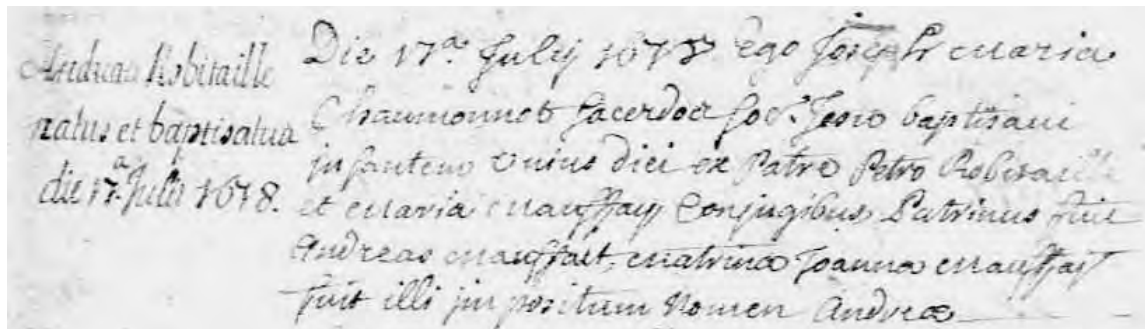 Andreas Robitaille
natus et baptisatus
die 17.a Julii 1678.
Die 17.a Julij 1678 ego Joseph Maria
Chaumonnot Sacerdos Soc. Jesu baptisavi
infantem unius diei ex Patre Petro Robitaille
et Maria Mauffay Conjugibus Patrinus fuit
Andreas Mauffait, Matrina Joanna Mauffait
fuit illi impositum Nomen Andreæ